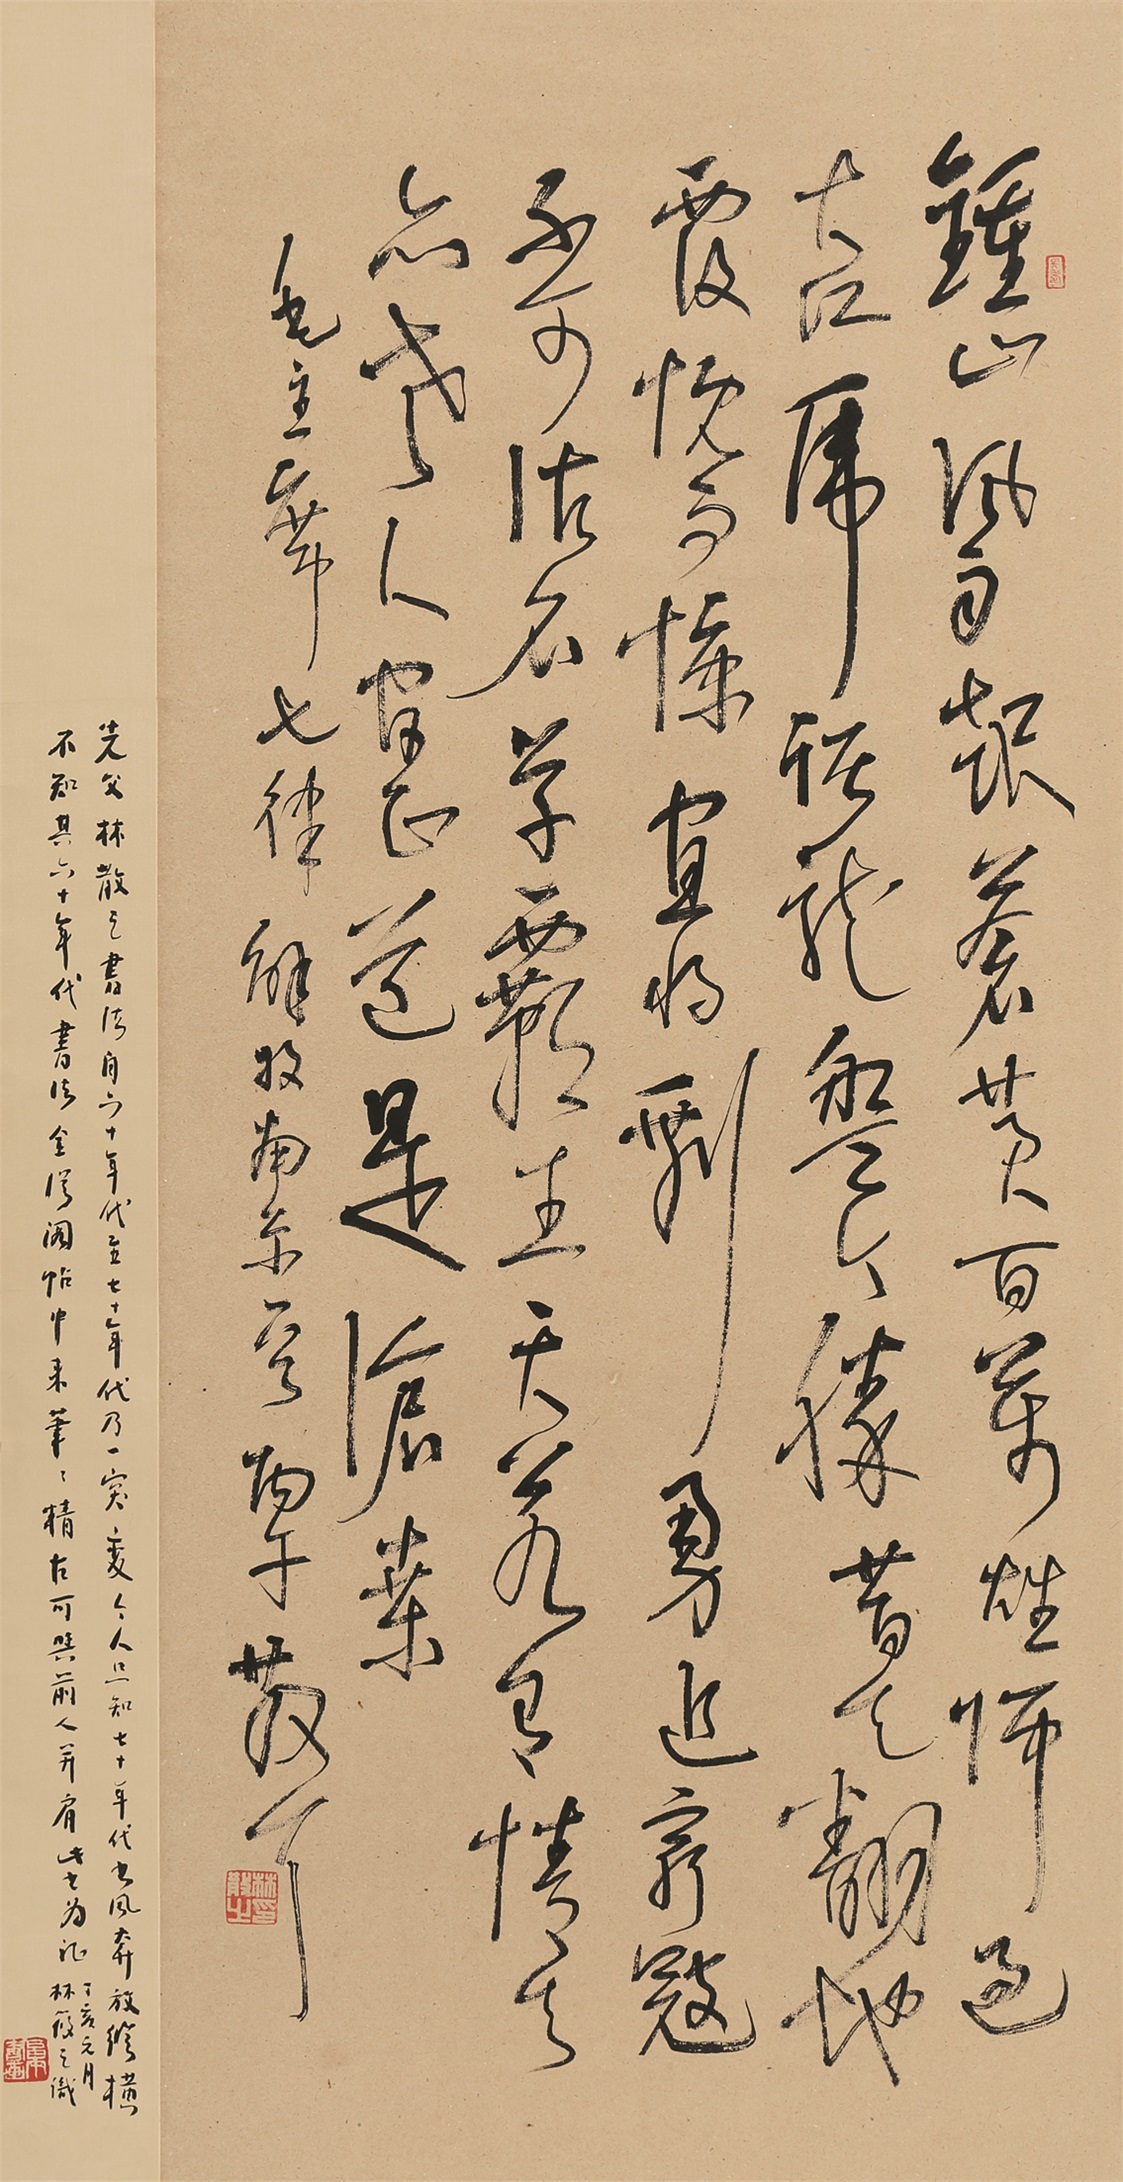 鍾山風雨起蒼黄百萬雄師過
大江虎踞龍盤今勝昔天翻地
覆慨而慷宜将剩勇追窮寇
不可沽名学霸王天若有情天
亦老人间正道是滄桑
毛主席七律解放南京 丙午 散耳
先父林散之書法自六十年代至七十年代乃一突变今人只知七十年代書风奔放縱横
不知其六十年代書法全從阁帖中来筆〻精古可與前人并肩此書为证
丁亥元月
林筱之識
林散之印